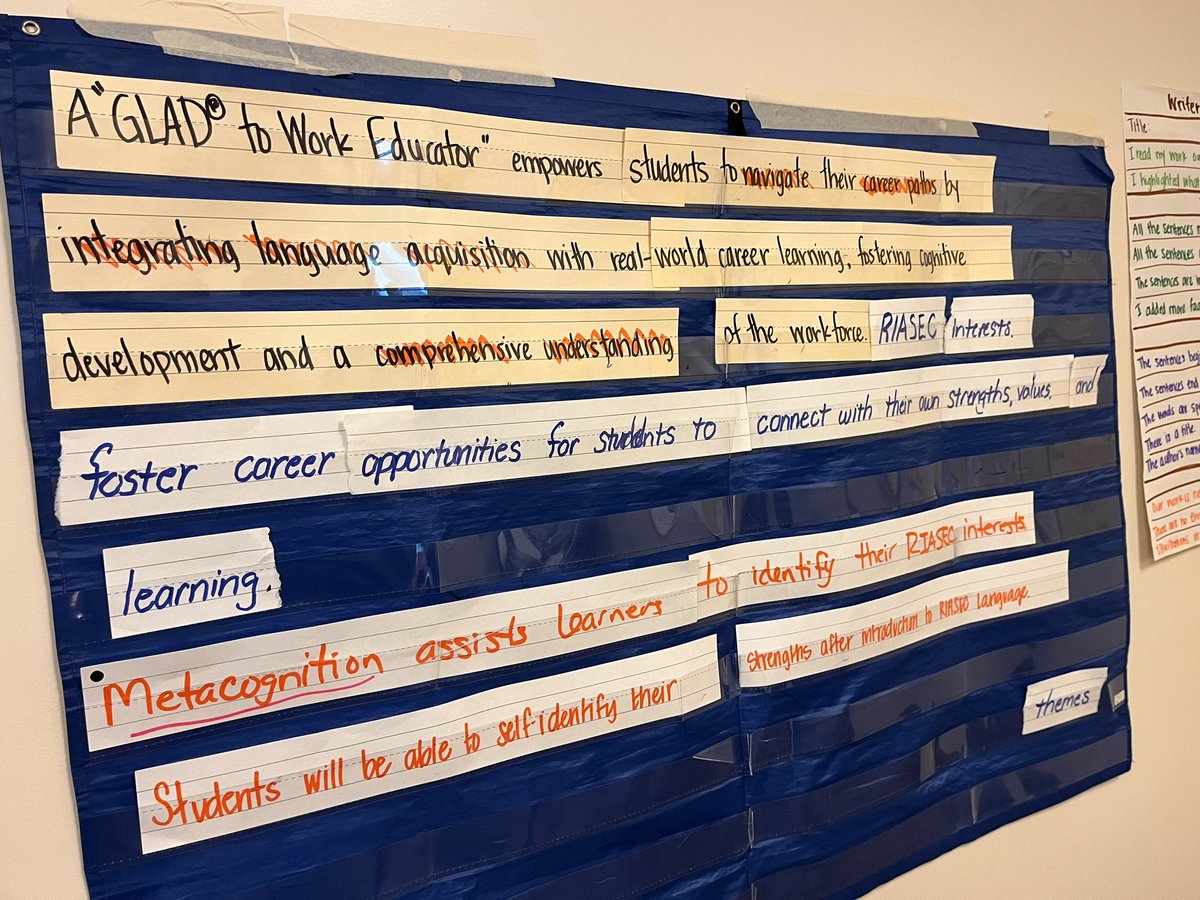 A "GLAD® to Work Educator" empowers students to navigate their career paths by
integrating language acquisition with real-world career learning, fostering cognitive
development and a comprehensive understanding of the workforce. RIASEC interests.
foster career opportunities for students to connect with their own strengths, values, and
learning.
Metacognition assists learners to identify their RIASEC interests.
Students will be able to self identify their strengths after introduction to RIASEC language.
themes
Writer
Title:
I read my work ou
I highlighted what
All the sentences
All the sentences
The sentences are
I added more
The sentences beg
The sentences end
The words are sp
There is a title.
The author's name
Our work is ne
There are no